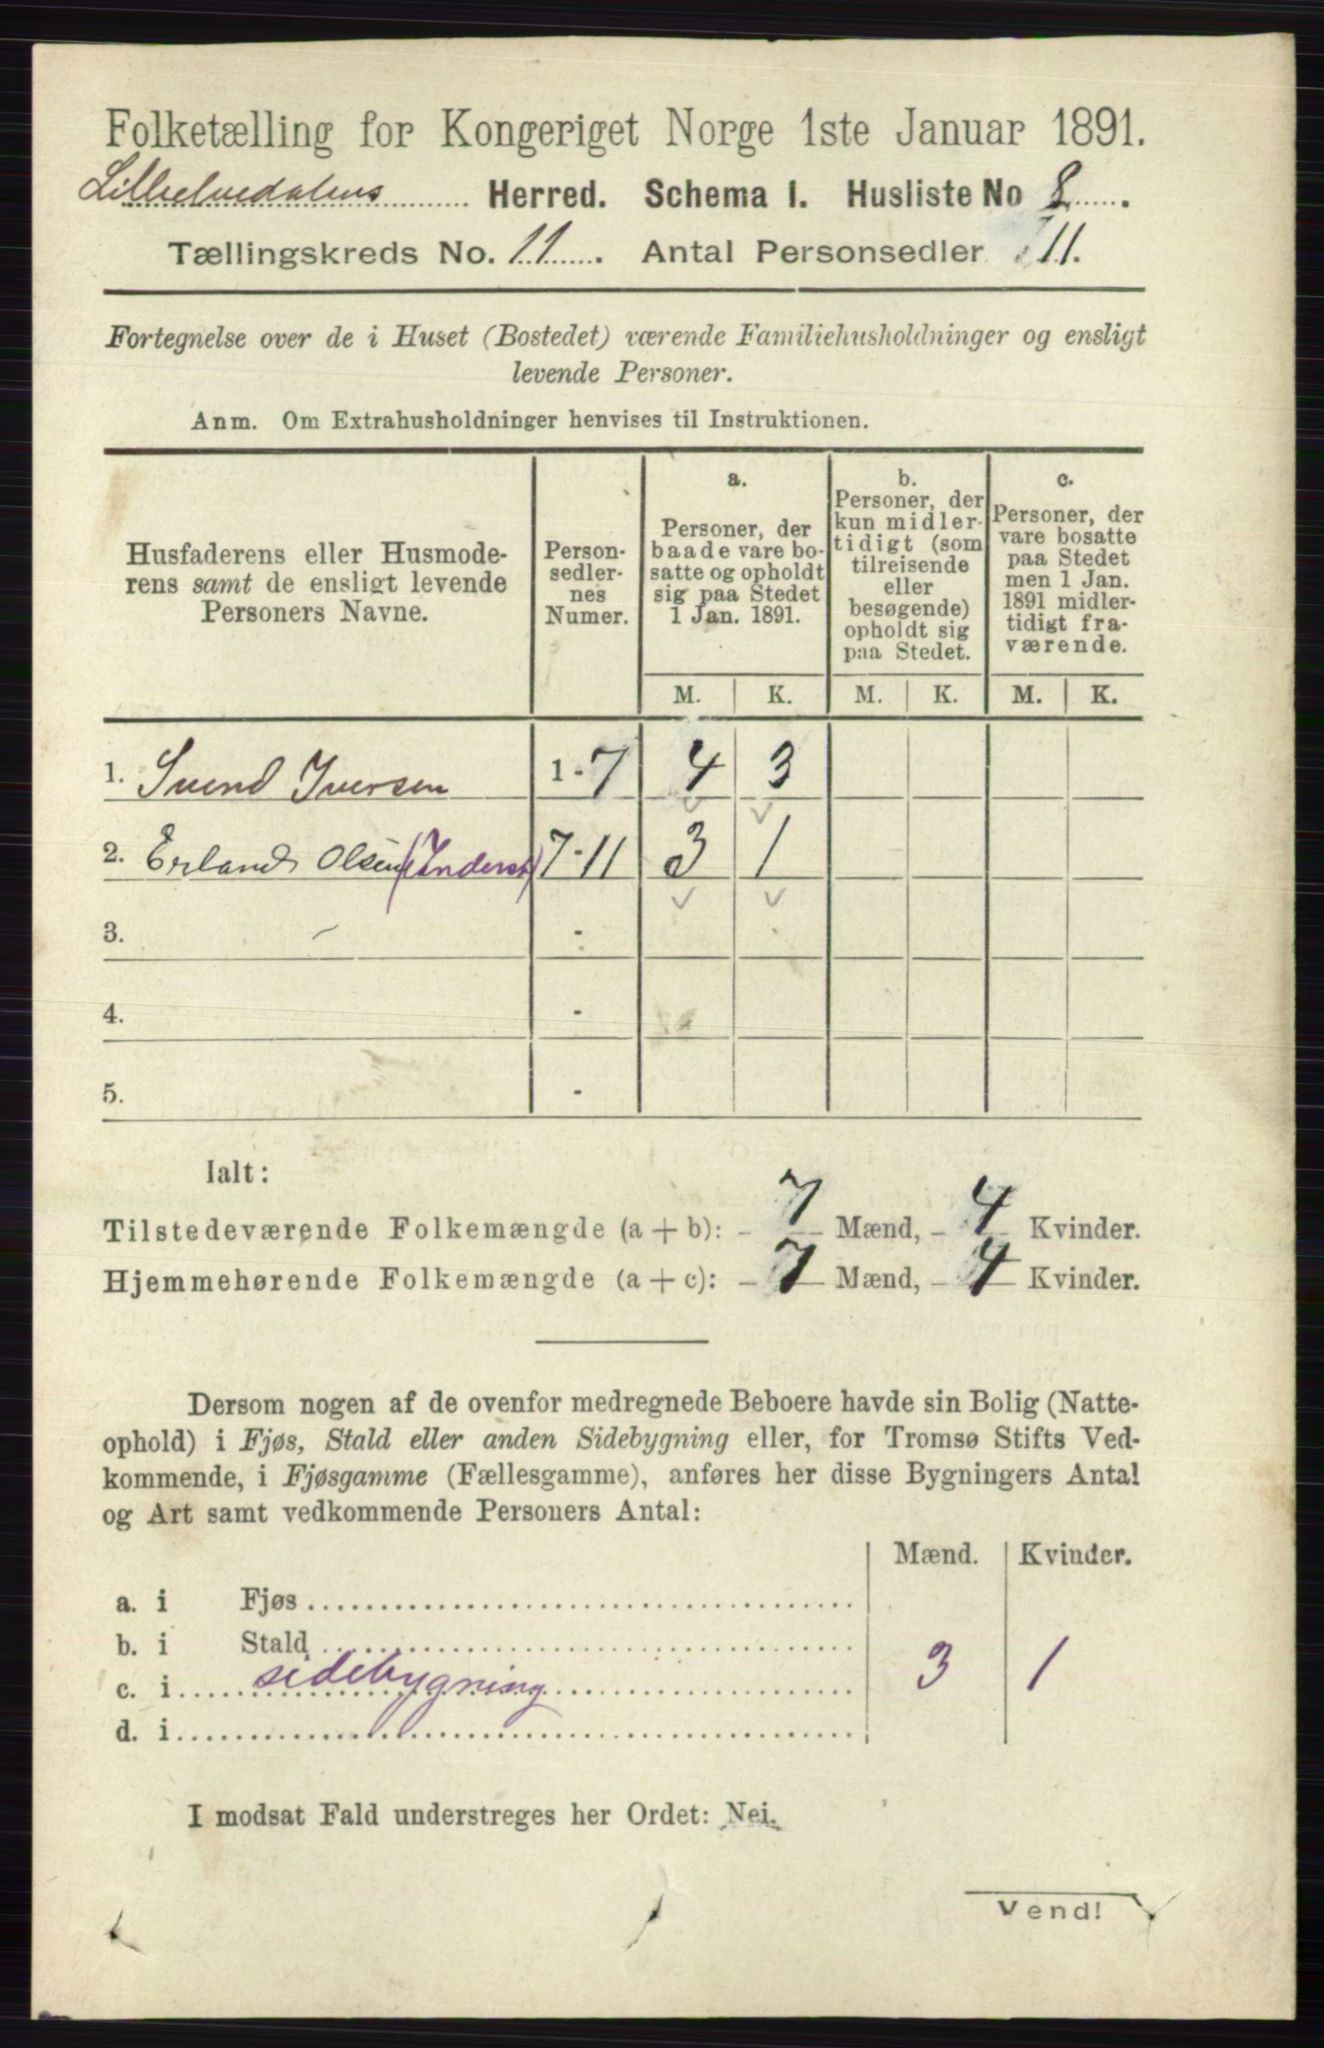 Folketælling for Kongeriget Norge 1ste Januar 1891.
Lilleelvedalens Herred. Schema I. Husliste No 8.
Tællingskreds No. 11. Antal Personsedler 11.
Fortegnelse over de i Huset (Bostedet) værende Familiehusholdninger og ensligt
levende Personer.
Anm. Om Extrahusholdninger henvises til Instruktionen.
Husfaderens eller Husmode-
rens samt de ensligt levende
Personers Navne.
Person-
sedler-
nes
Numer.
a.
Personer, der
baade vare bo-
satte og opholdt
sig paa Stedet
1 Jan. 1891.
b.
Personer, der
kun midler-
tidigt (som
tilreisende
eller
besøgende)
opholdt sig
paa Stedet.
c.
Personer, der
vare bosatte
paa Stedet
men 1 Jan.
1891 midler-
tidigt fra-
værende.
M. K. M. K. M. K.
1. Svend Iversen 1-7 4 3
2. Erland Olsen (Inderst) 7-11 3 1
3. -
4. -
5. -
Ialt:
Tilstedeværende Folkemængde (a + b): - 7 Mænd, - 4 Kvinder.
Hjemmehørende Folkemængde (a + c): - 7 Mænd, - 4 Kvinder.
Dersom nogen af de ovenfor medregnede Beboere havde sin Bolig (Natte-
ophold) i Fjøs, Stald eller anden Sidebygning eller, for Tromsø Stifts Ved-
kommende, i Fjøsgamme (Fællesgamme), anføres her disse Bygningers Antal
og Art samt vedkommende Personers Antal:
Mænd. Kvinder.
a. i Fjøs
b. i Stald
c. i sidebygning 3 1
d. i
I modsat Fald understreges her Ordet: Nei.
Vend!